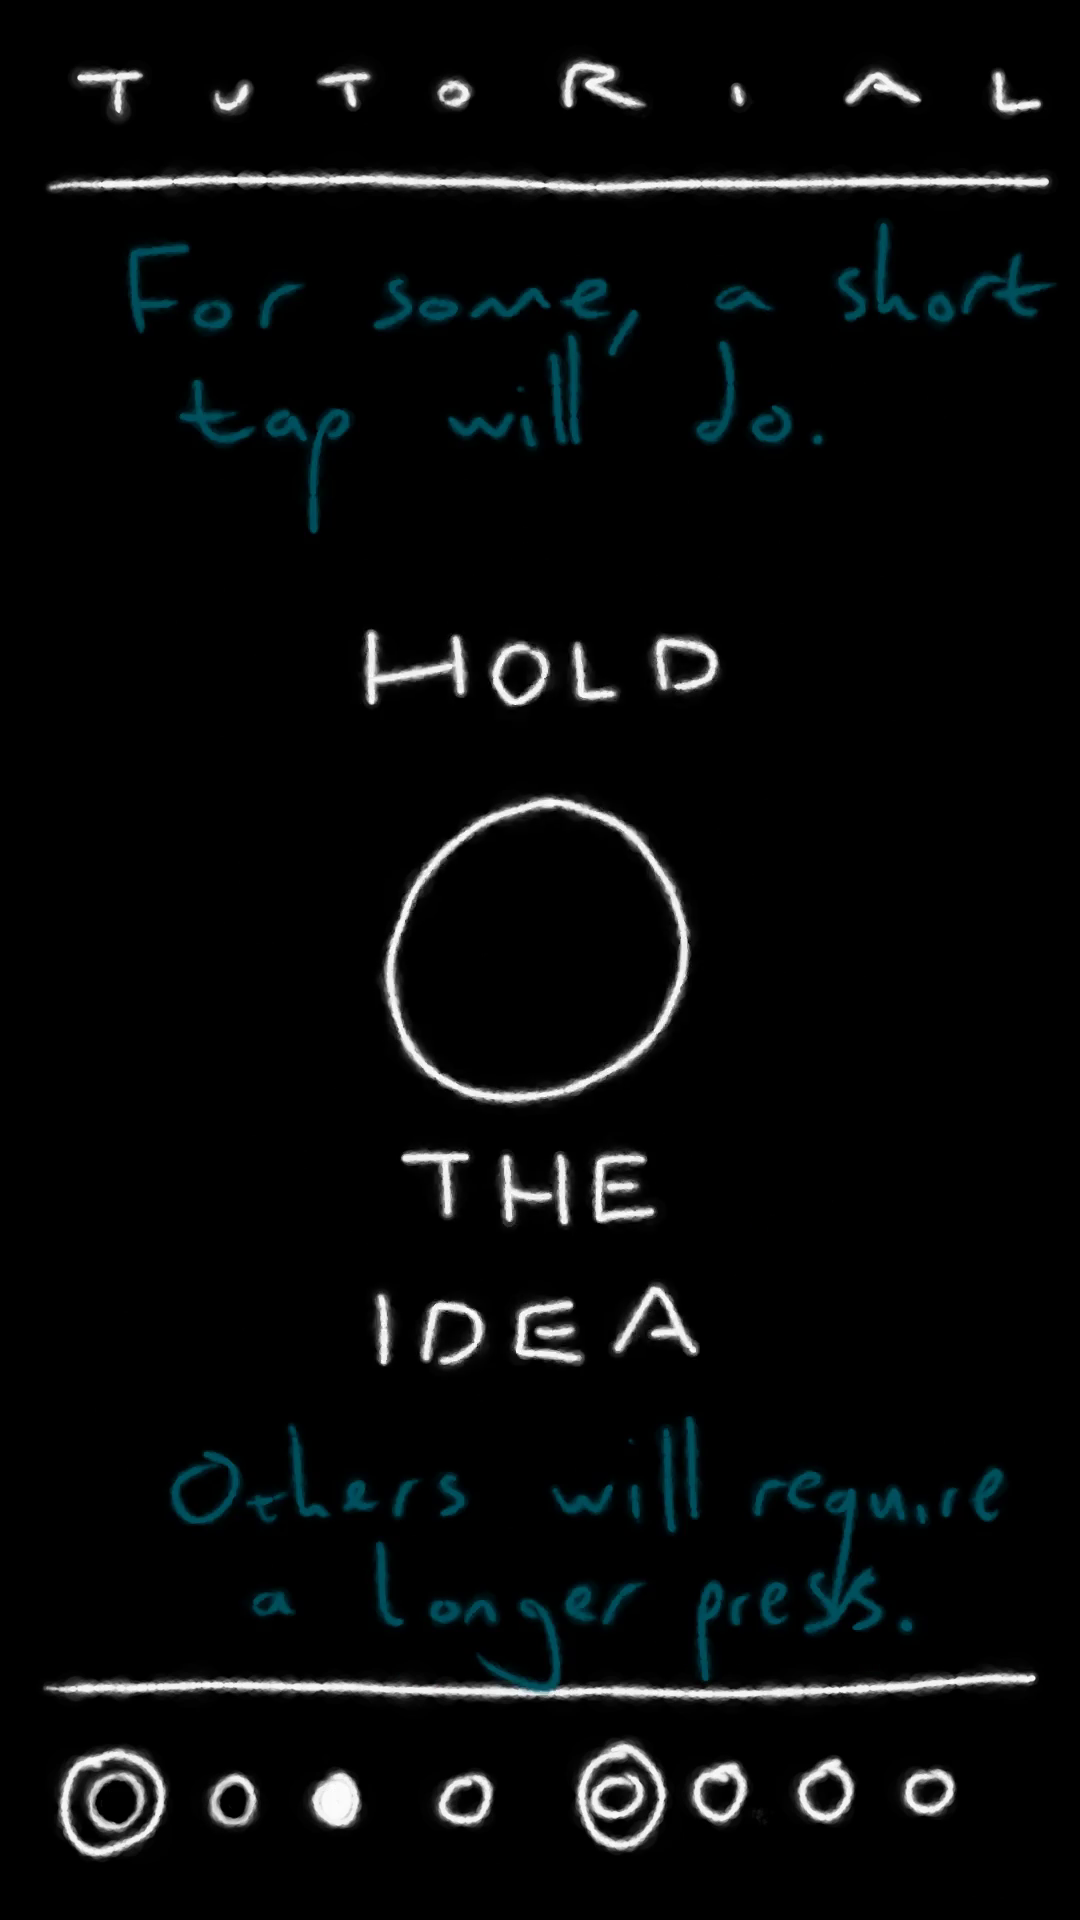 TUTORIAL
For some, a short
tap will do.
HOLD
THE
IDEA
Others will require
a longer press.